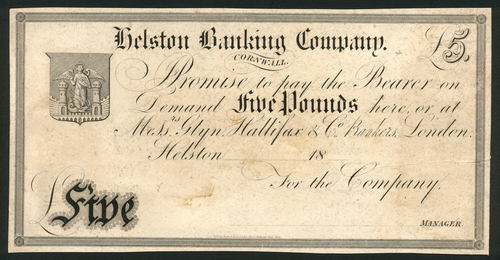 Helston Banking Company.
CORNWALL.
£5.
I Promise to pay the Bearer on
Demand Five Pounds here, or at
Mess.rs Glyn, Hallifax & Co. Bankers, London.
Helston 18
For the Company,
£ Five
MANAGER.